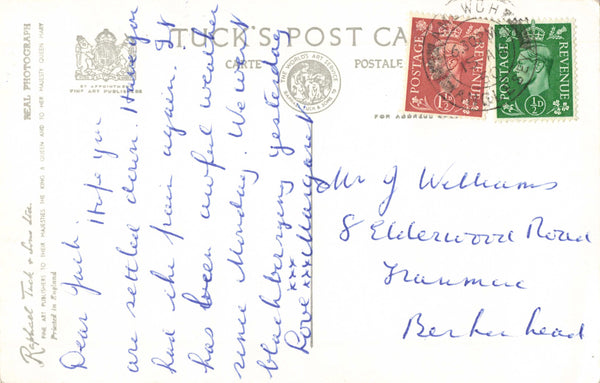 REAL PHOTOGRAPH
Raphael Tuck & Sons Ltd.
FINE ART PUBLISHERS TO THEIR MAJESTIES THE KING & QUEEN AND TO HER MAJESTY QUEEN MARY
Printed in England
BY APPOINTMENT
FINE ART PUBLISHERS
TUCK'S POST CA
CARTE POSTALE
THE WORLD'S ART SERVICE
RAPHAEL TUCK & SONS LTD
FOR ADDRESS ONLY
POSTAGE REVENUE
1½D
POSTAGE REVENUE
½D
Dear Jack. Hope you
are settled down. Have you
had the pain again. It
has been awful weather
since Monday. We went
blackberrying yesterday
Love xxx Margaret
xxx
Mr J Williams
8 Elderwood Road
Tranmere
Berkenhead